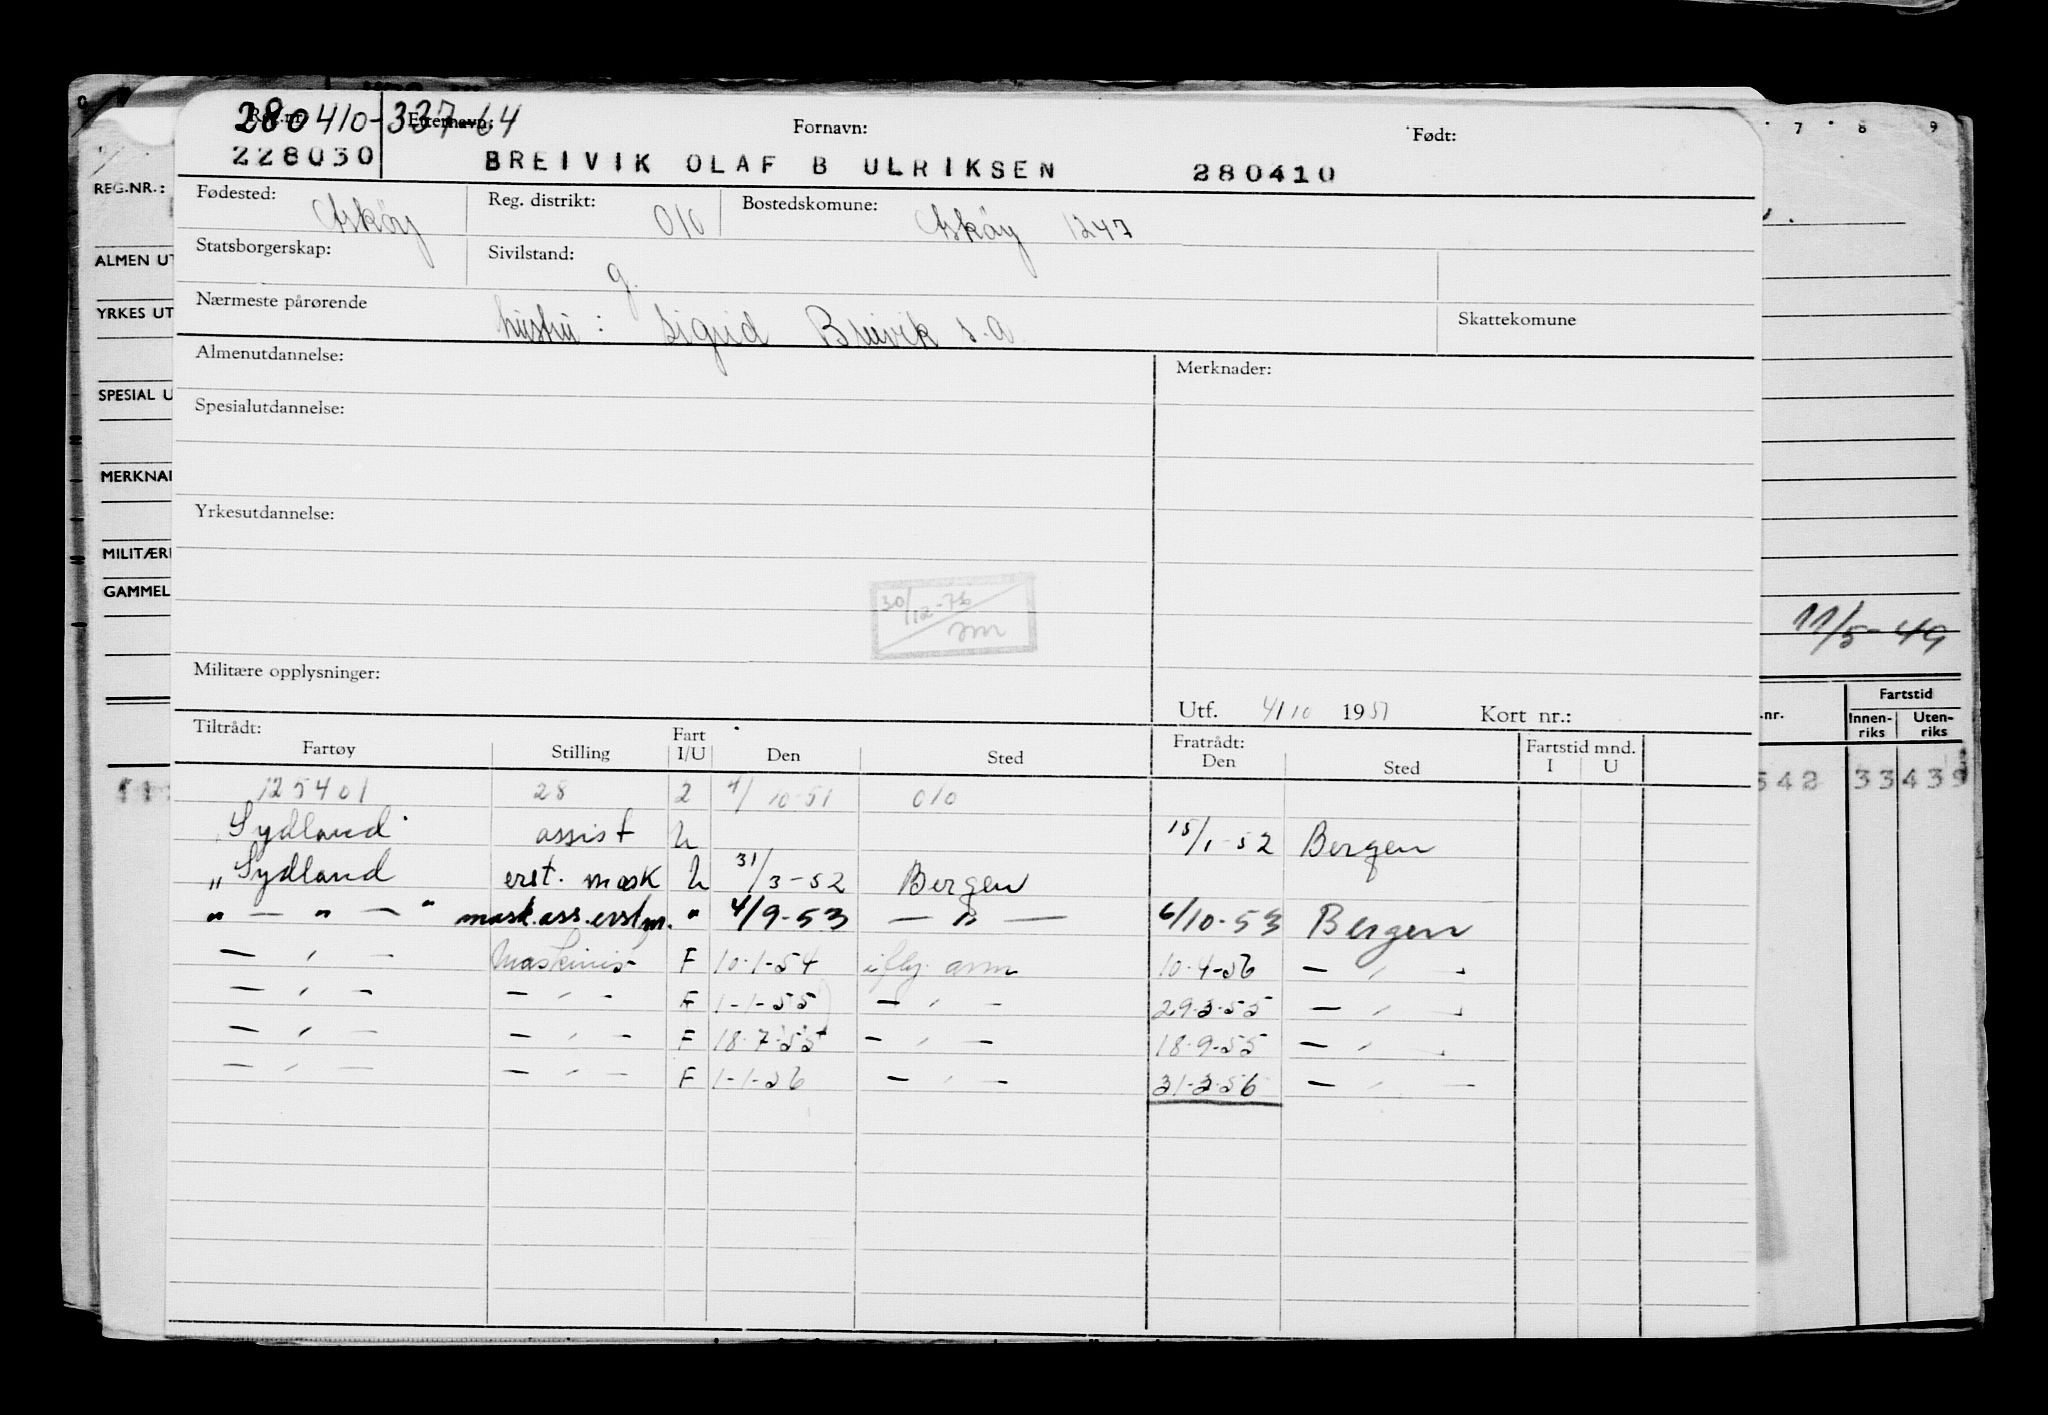 280410-33764
Reg.nr. Etternavn: Fornavn: Født:
228030 BREIVIK OLAF B ULRIKSEN 280410
Fødested: Askøy Reg. distrikt: 010 Bostedskomune: Askøy 1247
Statsborgerskap: Sivilstand: g.
Nærmeste pårørende hustru : Sigrid Breivik s.a. Skattekomune
Almenutdannelse: Merknader:
Spesialutdannelse:
Yrkesutdannelse:
30/12-76
Militære opplysninger:
Utf. 4/10 1951 Kort nr.:
Tiltrådt: Fart Fratrådt: Fartstid mnd.
Fartøy Stilling I/U Den Sted Den Sted I U
125401 28 2 4/10-51 010
"Sydland" assist U 15/1-52 Bergen
"Sydland erst. mask U 31/3-52 Bergen
" — " — " mask.ass.erstm. " 4/9-53 — " — 6/10-53 Bergen
— " — Maskinis F 10-1-54 iflg. asm 10-4-56 — "
— " — — " — F 1-1-55 — " — 29-3-55 — "
— " — — " — F 18-7-55 — " — 18-9-55 — "
— " — — " — F 1-1-56 — " — 31-3-56 — " —
REG.NR.:
ALMEN UT
YRKES UT
SPESIAL U
MERKNA
MILITÆR
GAMMEL
7 8 9
11/5-49
.nr. Fartstid
Innen-riks Uten-riks
542 33 439